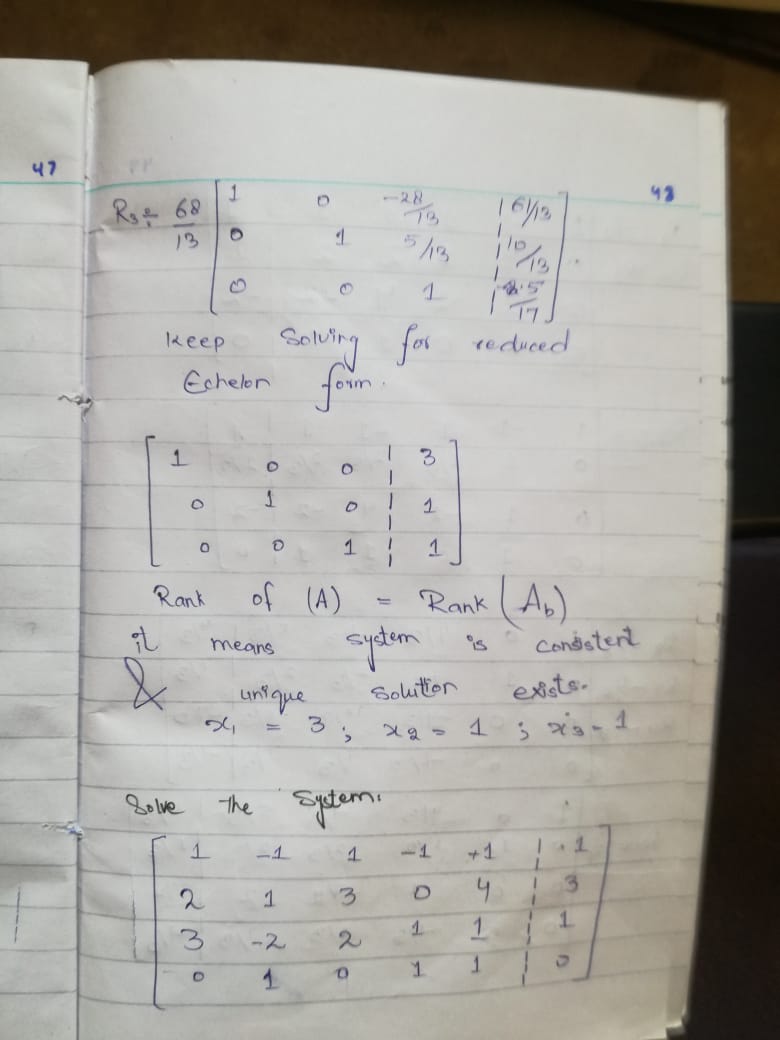 47
48
R₃ ÷ 68/13
1 0 -28/13 | 61/13
0 1 5/13 | 10/13
0 0 1 | 5/17
keep Solving for reduced
Echelon form.
1 0 0 | 3
0 1 0 | 1
0 0 1 | 1
Rank of (A) = Rank (A_b)
it means system is consistent
& unique solution exists.
x₁ = 3 ; x₂ = 1 ; x₃ = 1
Solve the System.
1 -1 1 -1 +1 | 1
2 1 3 0 4 | 3
3 -2 2 1 1 | 1
0 1 0 1 1 | 0